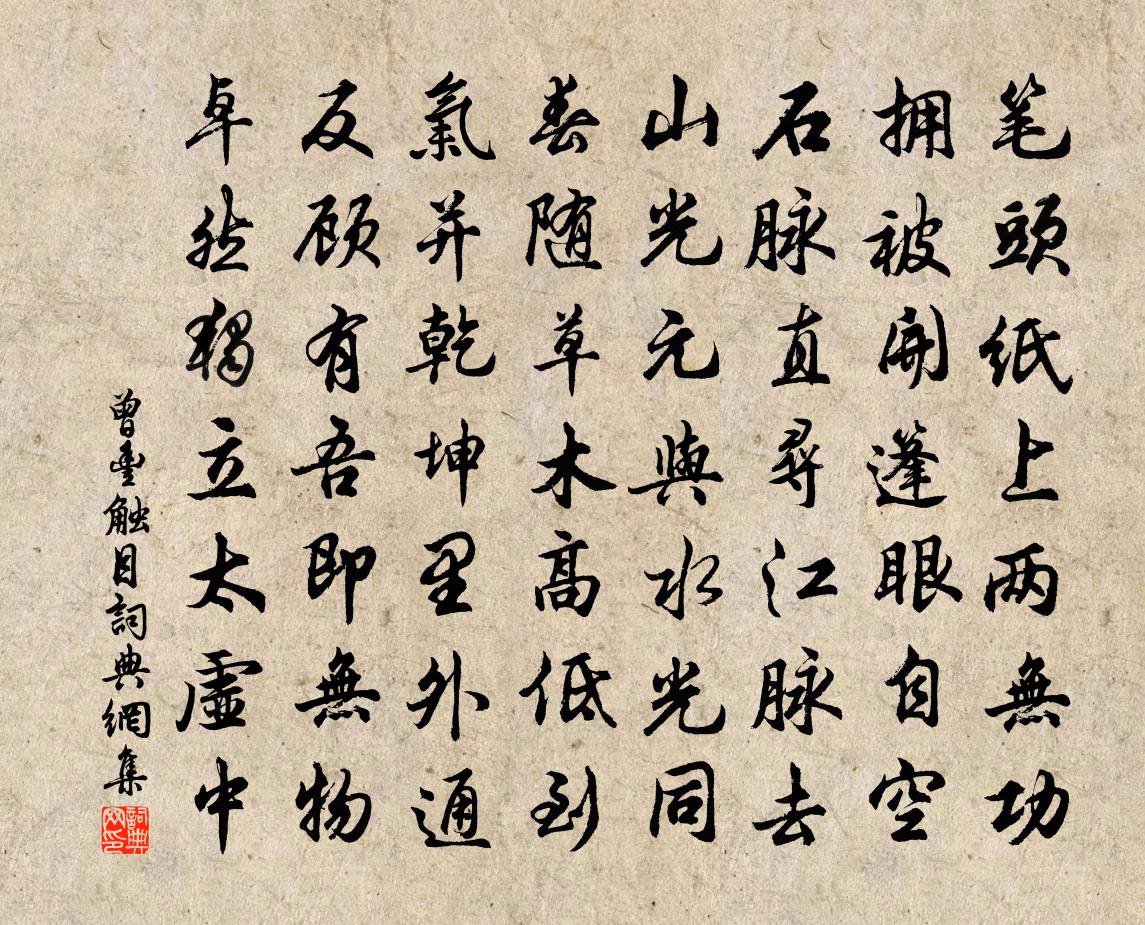 笔頭纸上两無功
拥被開篷眼自空
石脉直尋江脉去
山光元與水光同
春随草木髙低到
氣并乾坤里外通
反顾有吾即無物
卓然獨立太虚中
曾豊触目詞典網集
詞典网印